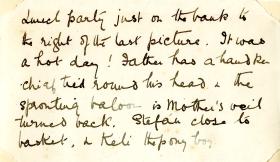 Lunch party just on the bank to
the right of the last picture. It was
a hot day! Father has a handker
chief tied round his head, & the
sprouting baloon is Mother's veil
turned back. Stefan close to
basket, & Keli the pony boy